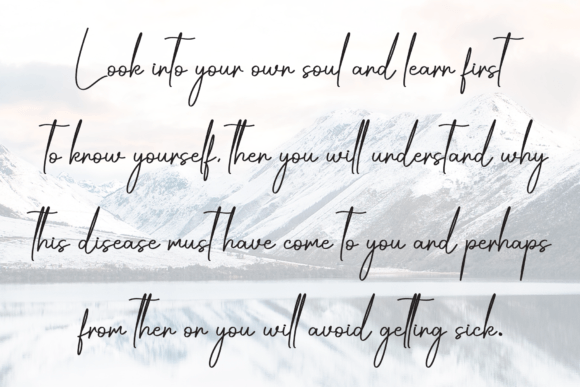 Look into your own soul and learn first
to know yourself, then you will understand why
this disease must have come to you and perhaps
from then on you will avoid getting sick.